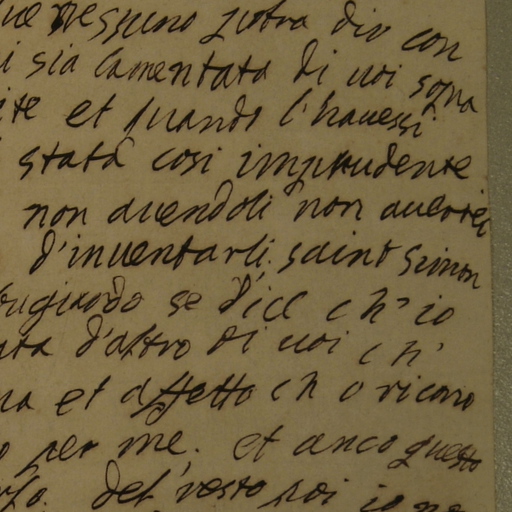 nessuno potra dir con
i sia lamentata di voi sopra
ite et quando l'havessi
stata cosi imprudente
non avendoli non averei
d'inventarli. saint simon
bugiardo se dice ch'io
ata d'altro di voi ch'
na et affetto ch o ricono
o per me. et anco questo
del resto poi io no